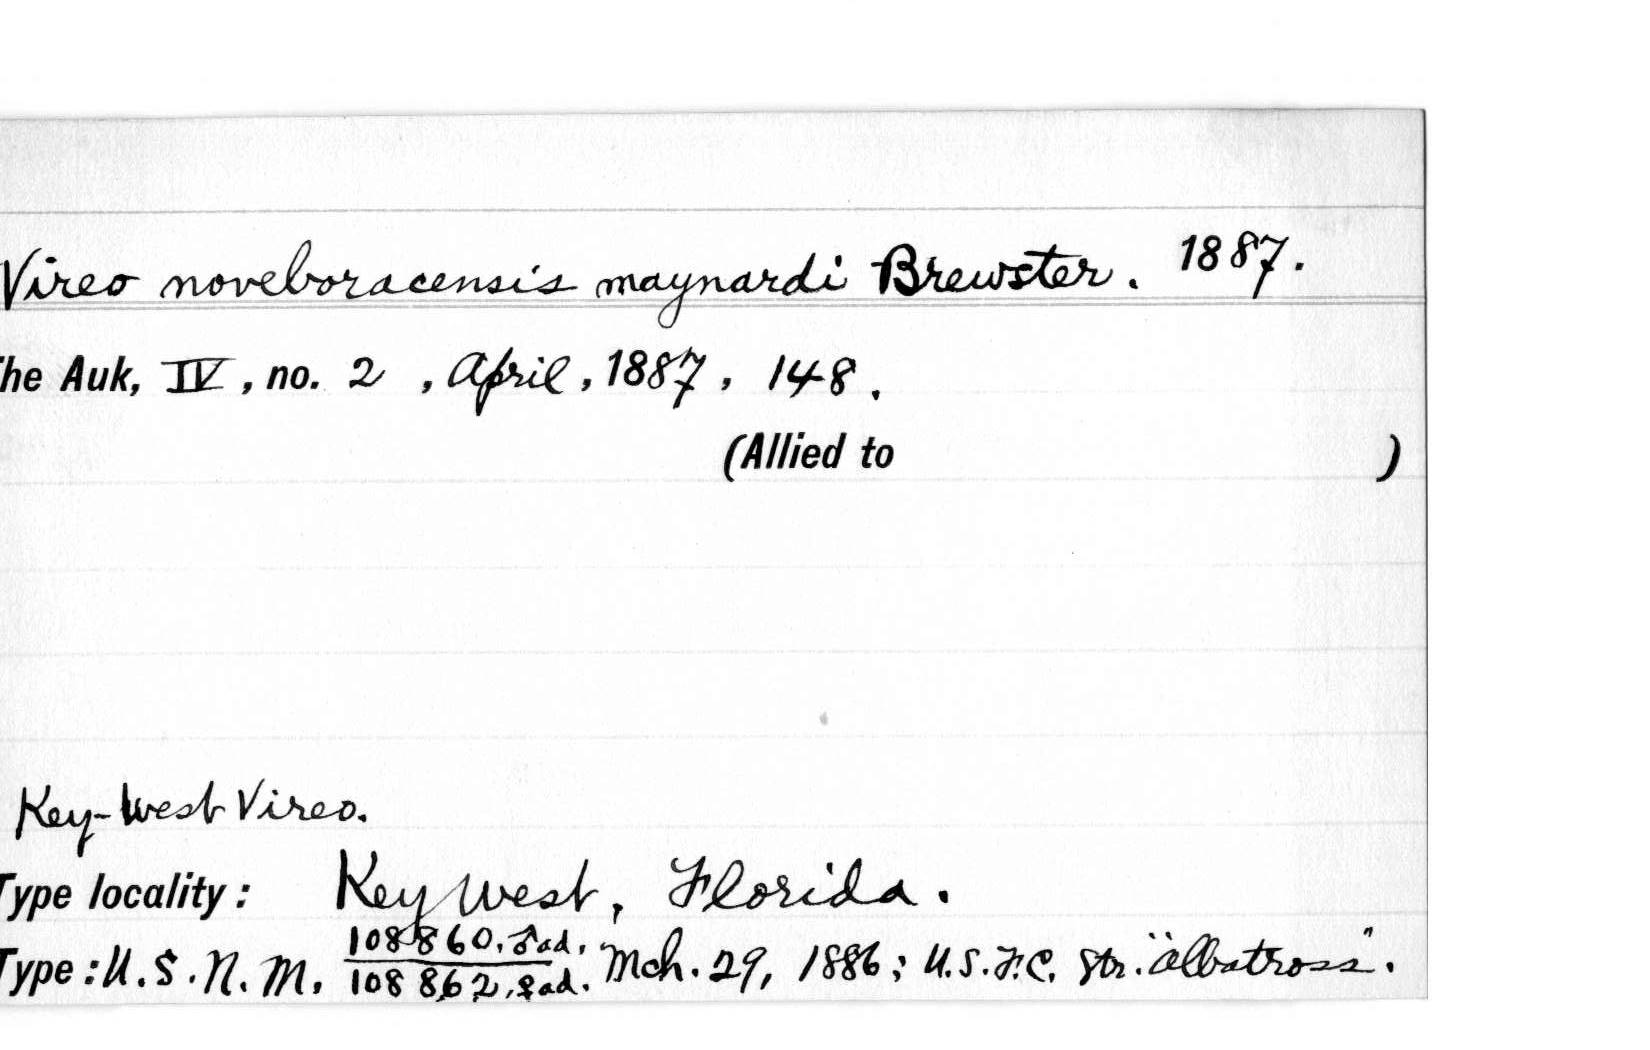 Vireo noveboracensis maynardi Brewster. 1887.
The Auk, IV, no. 2, April, 1887, 148.
(Allied to )
Key-West Vireo.
Type locality: Key West, Florida.
108860, ♂ad.
Type: U.S.N.M. Mch. 29, 1886; U.S.F.C. Str. "Albatross".
108862, ♀ad.